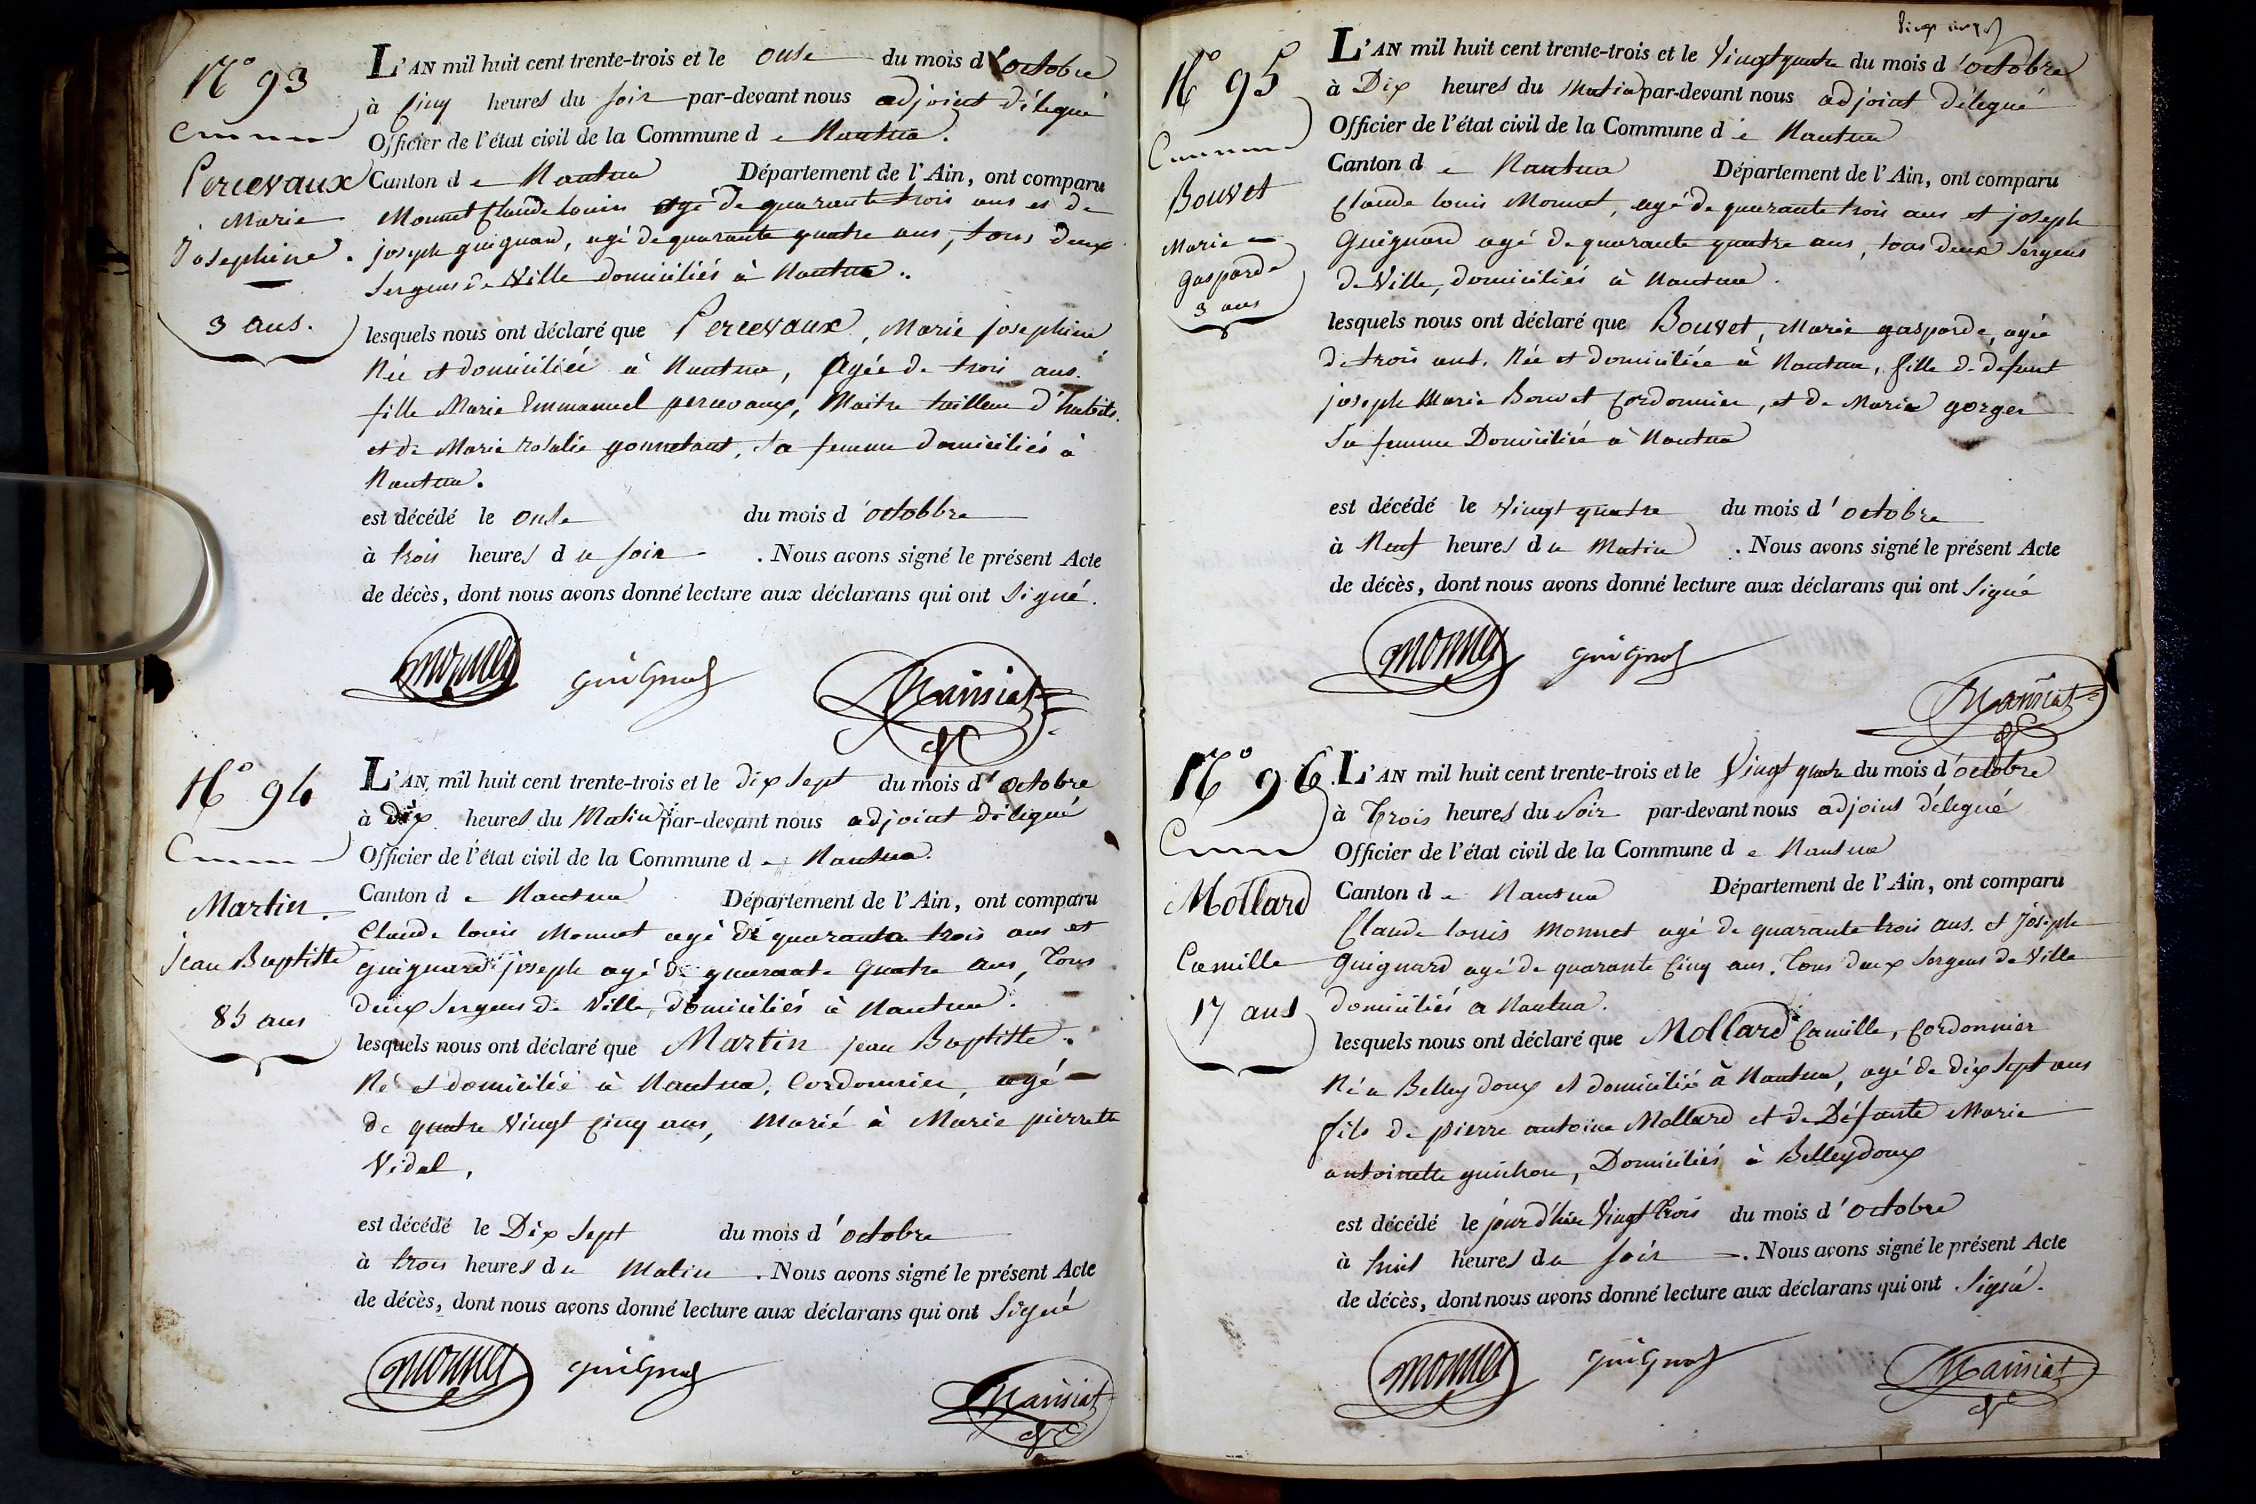 N° 93
Percevaux
Marie
Josephine.
3 ans.
L'AN mil huit cent trente-trois et le onse du mois d'octobre
à Cinq heures du soir par-devant nous adjoint délegué
Officier de l'état civil de la Commune de Nantua.
Canton de Nantua Département de l'Ain, ont comparu
Monnet Claude Louis agé de quarante trois ans et de
joseph guignard, agé de quarante quatre ans, tous deux
Sergens de Ville domiciliés à Nantua.
lesquels nous ont déclaré que Percevaux, Marie josephine
Née et domiciliée à Nantua, Agée de trois ans.
fille Marie Emmanuel percevaux, Maitre tailleur d'habits.
et de Marie rosalie gonnetant, sa femme domiciliés à
Nantua.
est décédé le onse du mois d'octobbre
à trois heures du soir. Nous avons signé le présent Acte
de décès, dont nous avons donné lecture aux déclarans qui ont Signé.
monnet guignard Mainiat
N° 94
Martin.
jean Baptiste
85 ans
L'AN mil huit cent trente-trois et le dix sept du mois d'octobre
à dix heures du Matin par-devant nous adjoint délegué
Officier de l'état civil de la Commune de Nantua.
Canton de Nantua Département de l'Ain, ont comparu
Claude louis Monnet agé de quarante trois ans et
guignard joseph agé de quarante quatre ans, Tous
deux Sergens de Ville, domiciliés à Nantua.
lesquels nous ont déclaré que Martin jean Baptiste.
Né et domicilié à Nantua, Cordonnier, agé
de quatre Vingt Cinq ans, Marié à Marie pierrette
Vidal,
est décédé le Dix Sept du mois d'octobre
à trois heures du Matin. Nous avons signé le présent Acte
de décès, dont nous avons donné lecture aux déclarans qui ont Signé
monnet guignard Mainiat
N° 95
Bouvet
Marie
gasparde
3 ans
L'AN mil huit cent trente-trois et le Vingt quatre du mois d'octobre
à Dix heures du Matin par-devant nous adjoint délegué
Officier de l'état civil de la Commune de Nantua
Canton de Nantua Département de l'Ain, ont comparu
Claude louis Monnet, agé de quarante trois ans et joseph
Guignard agé de quarante quatre ans, tous deux Sergens
de Ville, domiciliés à Nantua.
lesquels nous ont déclaré que Bouvet, Marie gasparde, agée
de trois ans. Née et domiciliée à Nantua, fille de defunt
joseph Marie Bouvet Cordonnier, et de Marie gorger
Sa femme Domiciliée à Nantua
est décédé le Vingt quatre du mois d'octobre
à Neuf heures du Matin. Nous avons signé le présent Acte
de décès, dont nous avons donné lecture aux déclarans qui ont Signé
monnet guignard Mainiat
N° 96.
Mollard
Camille
17 ans
L'AN mil huit cent trente-trois et le Vingt quatre du mois d'octobre
à Trois heures du Soir par-devant nous adjoint délegué
Officier de l'état civil de la Commune de Nantua
Canton de Nantua Département de l'Ain, ont comparu
Claude louis Monnet agé de quarante trois ans. et joseph
Guignard agé de quarante Cinq ans. Tous deux Sergens de Ville
domiciliés a Nantua.
lesquels nous ont déclaré que Mollard Camille, Cordonnier
Né a Belleydoux et domicilié à Nantua, agé de dix sept ans
fils de pierre antoine Mollard et de Défunte Marie
antoinette guichon, Domiciliés à Belleydoux
est décédé le jour d'hier Vingt trois du mois d'octobre
à huit heures du soir. Nous avons signé le présent Acte
de décès, dont nous avons donné lecture aux déclarans qui ont Signé.
monnet guignard Mainiat